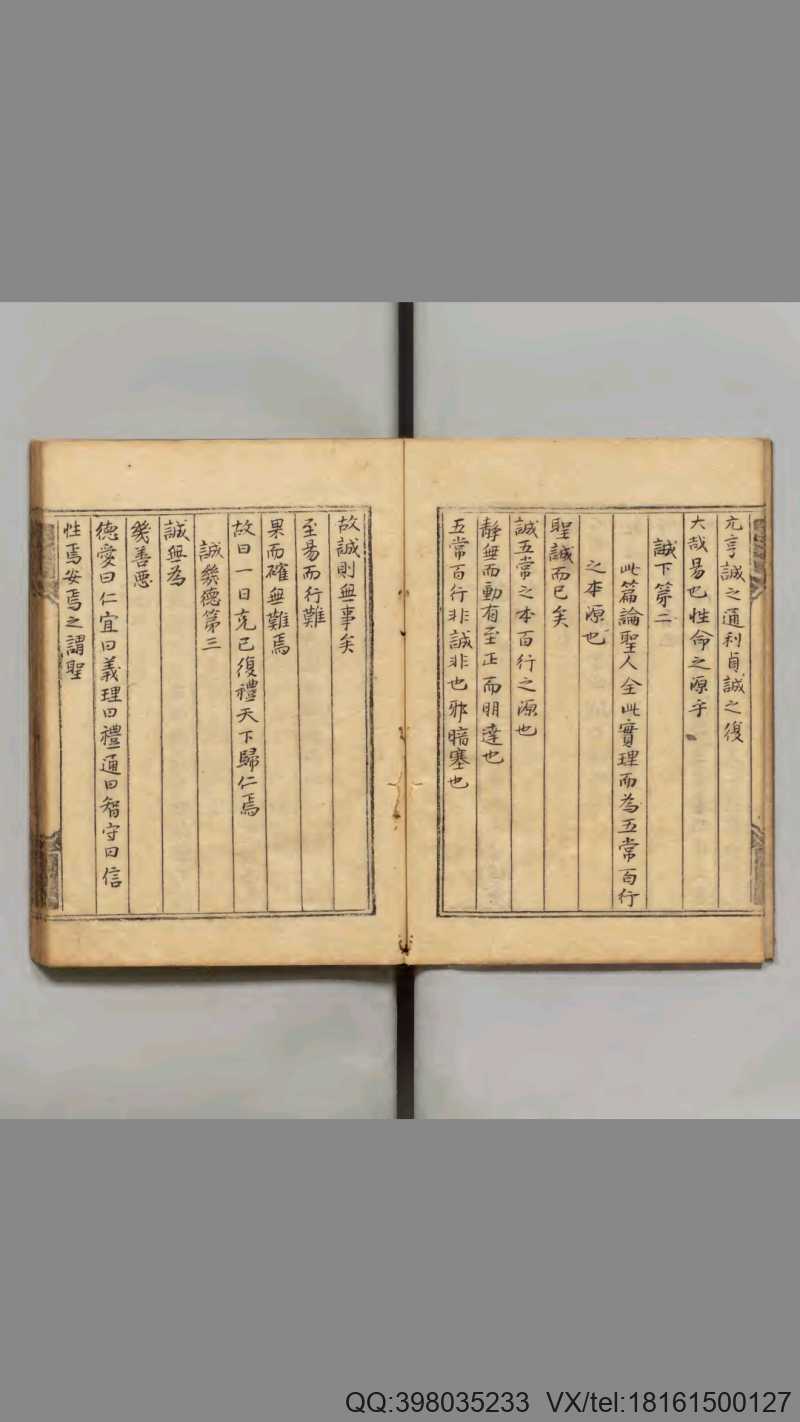 元亨誠之通利貞誠之復
大哉易也性命之源乎
誠下第二
此篇論聖人全此實理而為五常百行
之本源也
聖誠而已矣
誠五常之本百行之源也
靜無而動有至正而明達也
五常百行非誠非也邪暗塞也
故誠則無事矣
至易而行難
果而確無難焉
故曰一日克己復禮天下歸仁焉
誠幾德第三
誠無為
幾善惡
德愛曰仁宜曰義理曰禮通曰智守曰信
性焉安焉之謂聖
QQ:398035233 VX/tel:18161500127